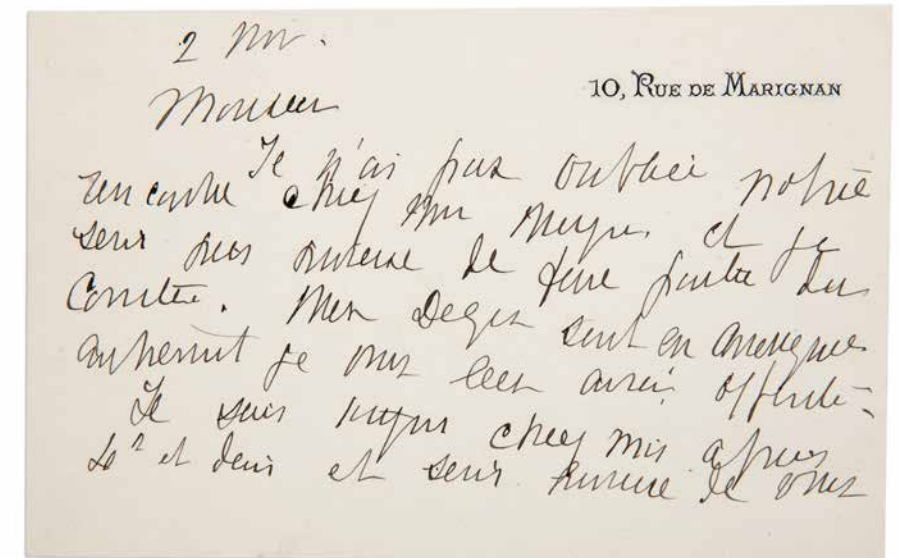 2 Nov.
10, RUE DE MARIGNAN
Monsieur
Je n'ai pas oublié notre
rencontre chez Mme Meyer. et je
serai heureuse de faire partie du
Comité. Mes Degas sont en Amerique
autrement je vous les aurais offerts-
Je suis toujours chez moi apres
et demi et serai heureuse de vous